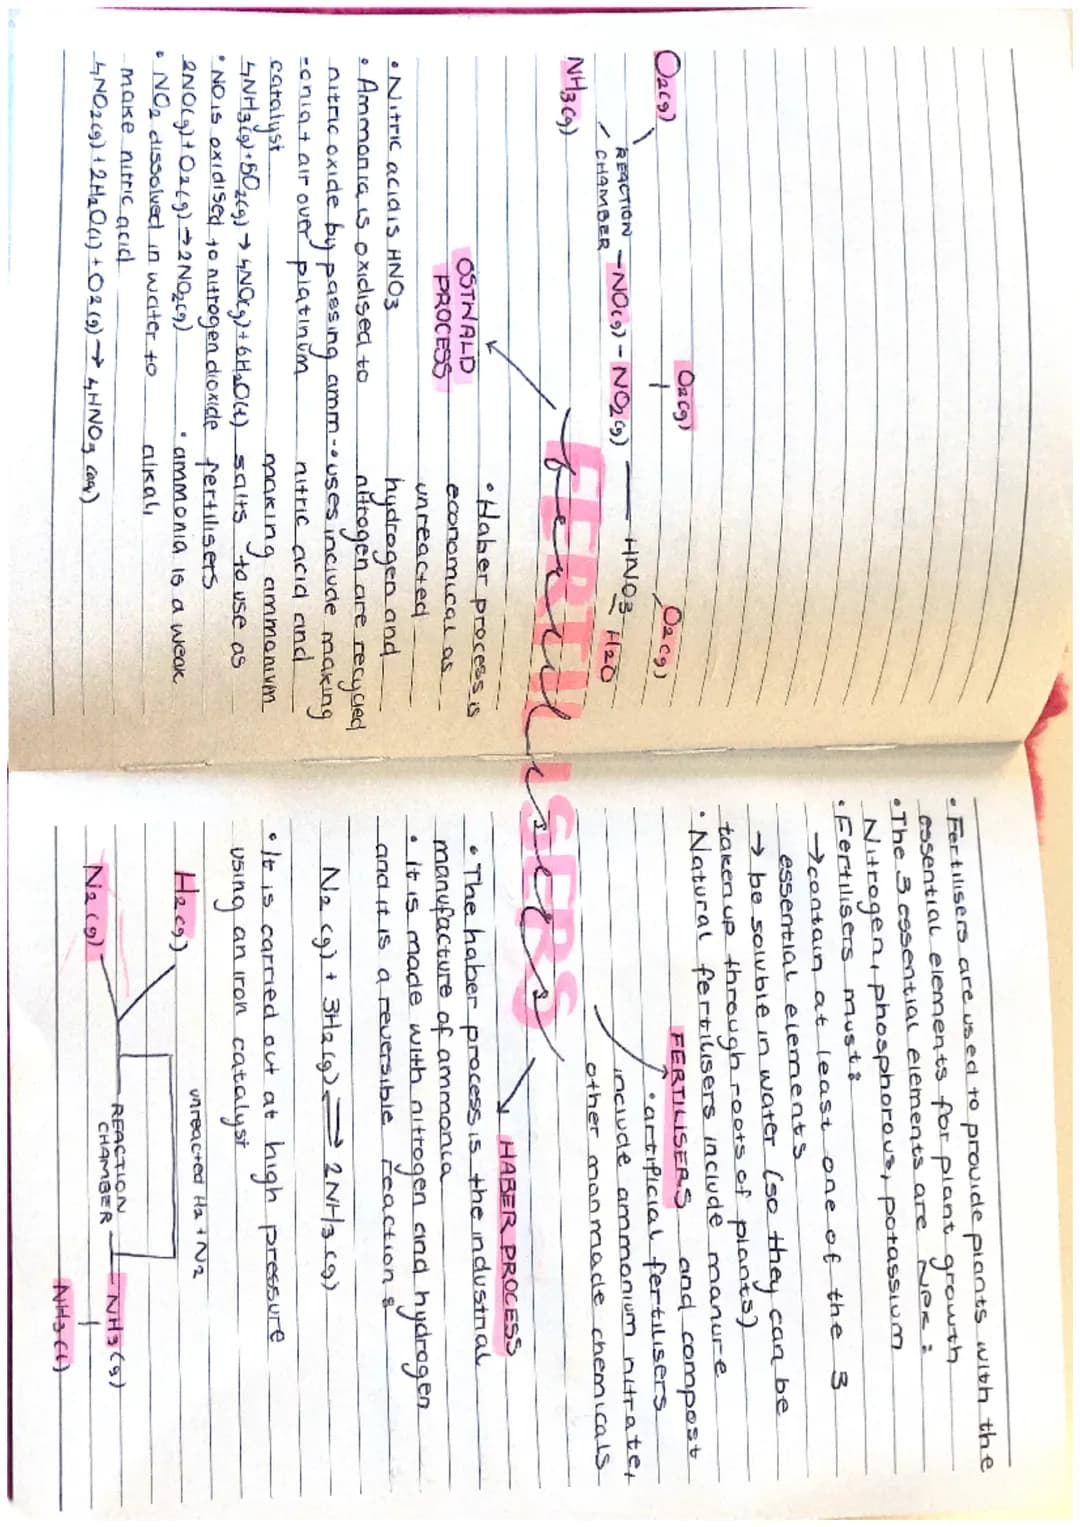 O2(g)
O2(g)
O2(g)
REACTION
CHAMBER
-NO(g) - NO2(g)
HNO3
H2O
NH3(g)
FERTILISERS
fertilisers
OSTWALD
PROCESS
• Nitric acid is HNO3
• Ammonia is oxidised to
nitric oxide by passing amm-
-onia + air over platinum
catalyst
4NH3(g)+5O2(g)→4NO(g)+6H2O(l)
• NO is oxidised to nitrogen dioxide
2NO(g)+O2(g)→2NO2(g)
• NO2 dissolved in water to
make nitric acid
4NO2(g)+2H2O(l)+O2(g)→4HNO3(aq)
• Haber process is
economical as
unreacted
hydrogen and
nitrogen are recycled
• uses include making
nitric acid and
making ammonium
salts to use as
fertilisers
• ammonia is a weak
alkali
• Fertilisers are used to provide plants with the
essential elements for plant growth
• The 3 essential elements are NPK:
Nitrogen, phosphorous, potassium
• Fertilisers must:
→ contain at least one of the 3
essential elements
→ be soluble in water (so they can be
taken up through roots of plants)
• Natural fertilisers include manure
and compost
FERTILISERS
• artificial fertilisers
include ammonium nitrate,
other manmade chemicals
HABER PROCESS
• The haber process is the industrial
manufacture of ammonia
• it is made with nitrogen and hydrogen
and it is a reversible reaction:
N2(g) + 3H2(g) ⇌ 2NH3(g)
• It is carried out at high pressure
using an iron catalyst
unreacted H2+N2
H2(g)
N2(g)
REACTION
CHAMBER
NH3(g)
NH3(l)